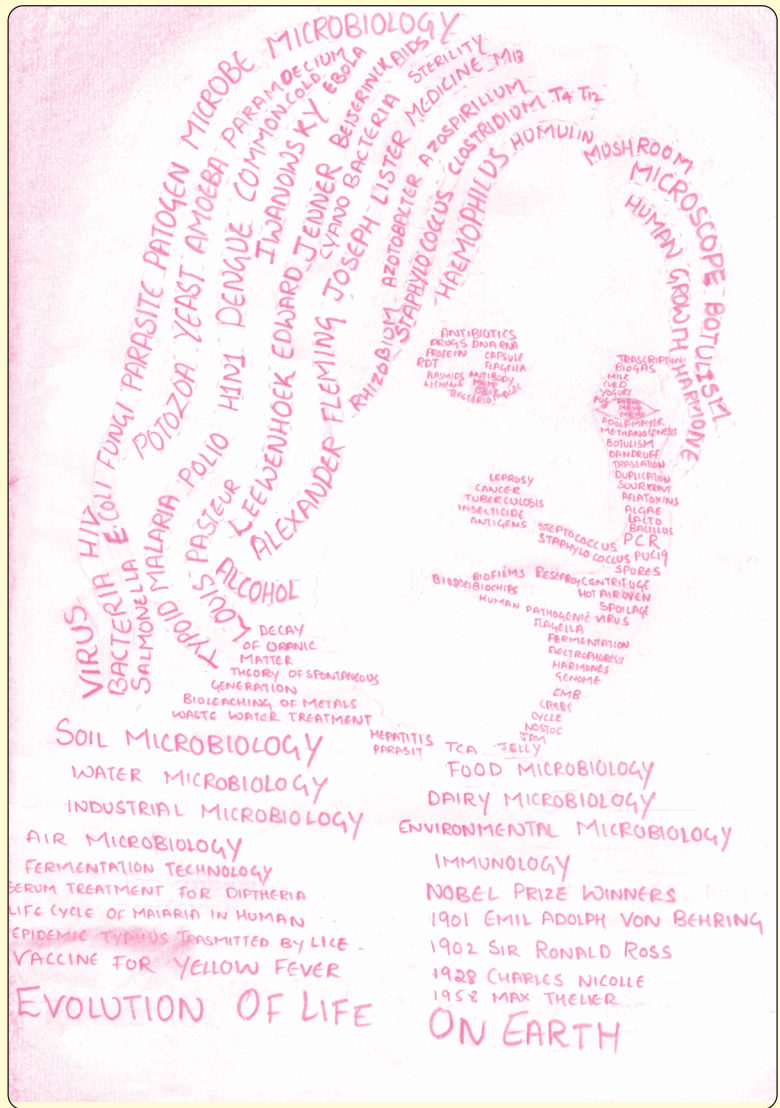 VIRUS HIV
BACTERIA E.COLI FUNGI PARASITE PATOGEN MICROBE MICROBIOLOGY
SALMONELLA
POTOZOA YEAST AMOEBA PARAMOECIUM
TYPOID MALARIA POLIO H1N1 DENGUE COMMON COLD
IWANOWSKY EBOLA
LOUIS PASTEUR
LEEWENHOEK EDWARD JENNER BEIJERINICK AIDS
CYANO BACTERIA STERILITY
ALCOHOL
ALEXANDER FLEMING JOSEPH LISTER MEDICINE M13
RHIZOBIUM AZOTOBACTER AZOSPIRILLUM
STAPHYLOCOCCUS CLOSTRIDIUM T4 T12
HAEMOPHILUS HUMULIN
MUSHROOM
MICROSCOPE BOTULISM
HUMAN GROWTH HARMONE
ANTIBIOTICS
DRUGS DNA RNA
PROTEIN CAPSULE
RDT FLAGELLA
PLASMIDS ANTIBODY
LICHENS
BACTERIA
TRANSCRIPTION
BIOGAS
MILK
CURD
YOGURT
ADOLFMAYER
METHANOGENESIS
BOTULISM
DANDRUFF
TRASLATION
DUPLICATION
SUURKRAUT
AFLATOXINS
ALGAE
LALTO
BACILLUS
PCR
PUC19
SPORES
LEPROSY
CANCER
TUBERCULOSIS
INSECTICIDE
ANTIGENS STEPTOCOCCUS
STAPHYLOCOCCUS
BIOFILMS
BIOCHIPS
CENTRIFUGE
HOT AIR OVEN
SPOILAGE
HUMAN PATHOGENIC VIRUS
FLAGELLA
FERMENTATION
ELECTROPHORESIS
HARMONES
GENOME
EMB
CREBS
CYCLE
NOSTOC
JAM
JELLY
TCA
HEPATITIS
PARASIT
DECAY
OF ORANIC
MATTER
THEORY OF SPONTANEOUS
GENERATION
BIOLEACHING OF METALS
WASTE WATER TREATMENT
SOIL MICROBIOLOGY
WATER MICROBIOLOGY
INDUSTRIAL MICROBIOLOGY
AIR MICROBIOLOGY
FERMENTATION TECHNOLOGY
SERUM TREATMENT FOR DIPTHERIA
LIFE CYCLE OF MALARIA IN HUMAN
EPIDEMIC TYPHUS TRASMITTED BY LICE
VACCINE FOR YELLOW FEVER
FOOD MICROBIOLOGY
DAIRY MICROBIOLOGY
ENVIRONMENTAL MICROBIOLOGY
IMMUNOLOGY
NOBEL PRIZE WINNERS
1901 EMIL ADOLPH VON BEHRING
1902 SIR RONALD ROSS
1928 CHARLES NICOLLE
1958 MAX THELIER
EVOLUTION OF LIFE
ON EARTH